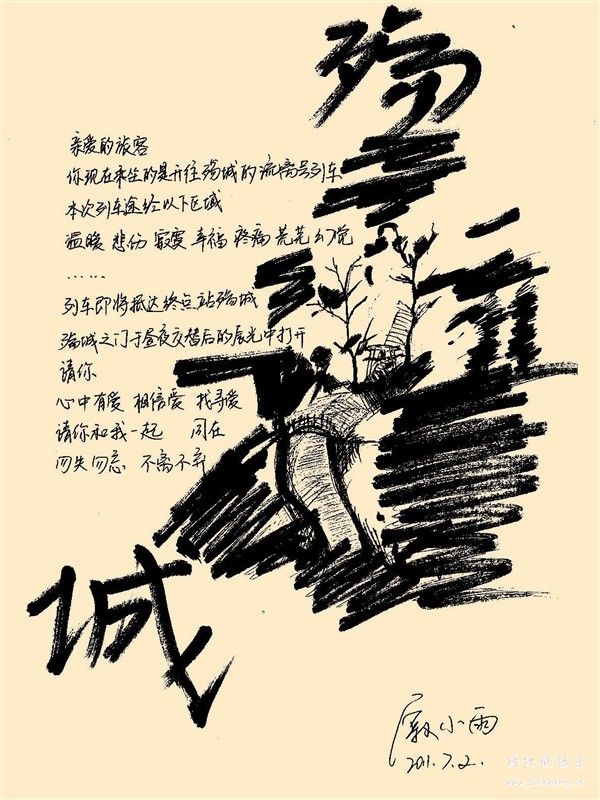 殇
亲爱的旅客
你现在乘坐的是开往殇城的流离号列车
本次列车途经以下区域
温暖 悲伤 寂寞 幸福 疼痛 荒芜 幻觉
……
列车即将抵达终点站殇城
殇城之门于昼夜交替后的晨光中打开
请你
心中有爱 相信爱 找寻爱
请你和我一起 同在
勿失勿忘 不离不弃
城
小雨
2011.7.2.